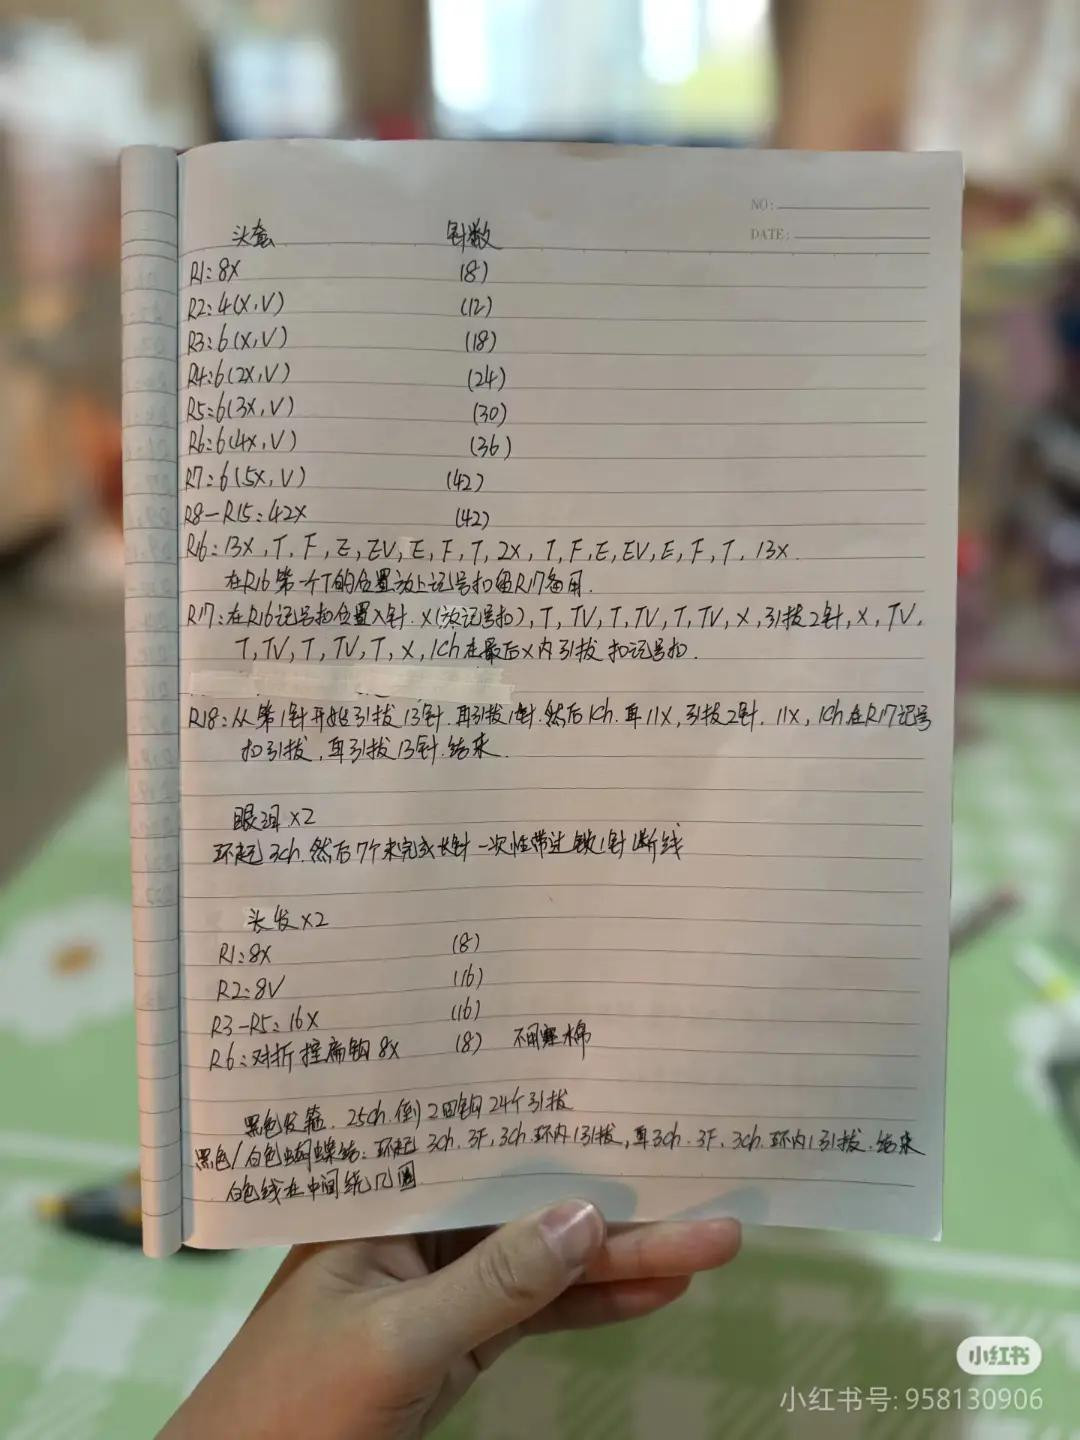 NO:
DATE:
头套 针数
R1:8X (8)
R2:4(X,V) (12)
R3:6(X,V) (18)
R4:6(2X,V) (24)
R5:6(3X,V) (30)
R6:6(4X,V) (36)
R7:6(5X,V) (42)
R8-R15:42X (42)
R16:13X,T,F,E,EV,E,F,T,2X,T,F,E,EV,E,F,T,13X.
在R16第一个T的位置放上记号扣留R17备用.
R17:在R16记号扣位置入针.X(放记号扣),T,TV,T,TV,T,TV,X,引拔2针,X,TV,
T,TV,T,TV,T,X,1ch在最后X内引拔 扣记号扣.
R18:从第1针开始引拔13针.再引拔1针.然后1ch.再11X,引拔2针.11X,1ch.在R17记号
扣引拔,再引拔13针.结束.
眼洞X2
环起3ch.然后7个未完成长针一次性带过 锁1针断线
头发X2
R1:8X (8)
R2:8V (16)
R3-R5:16X (16)
R6:对折捏扁钩8X (8) 不用塞棉
黑色发箍.25ch.倒2回钩24个引拔
黑色/白色蝴蝶结:环起3ch.3F,3ch.环内1引拔,再3ch.3F,3ch.环内1引拔.结束
白色线在中间绕几圈
小红书
小红书号:958130906